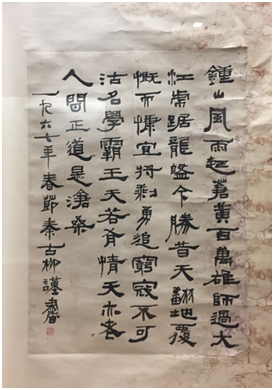 鍾山風雨起蒼黄百萬雄師過大
江虎踞龍盤今勝昔天翻地覆
慨而慷宜將剩勇追窮寇不可
沽名學霸王天若有情天亦老
人間正道是滄桑
一九六七年春節秦古柳謹書